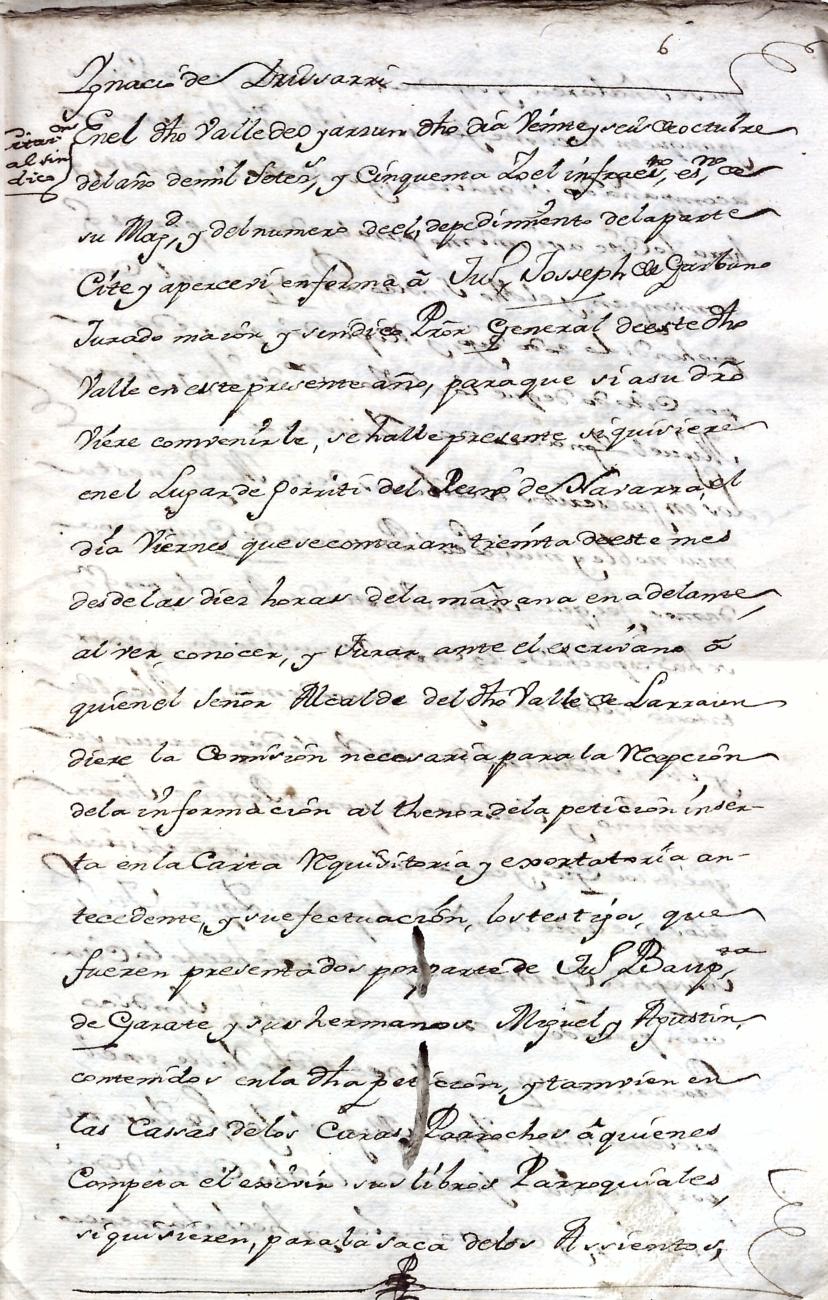 6
Ygnacio de Yrissarri
Citaci
on
al sin
dico
En el dho Valle de oyarzun dho dia Veinte y seis de octubre
del año de mil Seteˢ, y Cinquenta Yo el infraetᵒ, esⁿᵒ de
su Magᵈ, y del numero de el, de pedimiento de la parte
Cite y aperceví en forma â Juⁿ Josseph de Garbuno
Jurado maior y sindico Pror General de este dho
Valle en este presente año, para que si a su dro
Viere convenirle, se halle presente si quisiere
en el Lugar de Gorriti del Reino de Navarra, el
dia Viernes que se contaran treinta de este mes
desde las diez horas de la mañana en adelante,
al ver, conocer, y Jurar ante el escrivano â
quien el Señor Alcalde del dho Valle de Larraun
diere la Comision necesaria, para la Recepcion
de la informacion al thenor de la peticion inser-
ta en la Carta Requisitoria y exortatoria an-
tecedente, y su efectuacion, los testigos, que
fueren presentados por parte de Juⁿ Baupᵗᵃ
de Garate, y sus hermanos Miguel, y Agustin,
contenidos en la dha peticion, y tamvien en
las Cassas de los Curas Parrochos â quienes
Competa el exivir sus libros Parroquiales,
si quisieren, para la saca de los Assientos,